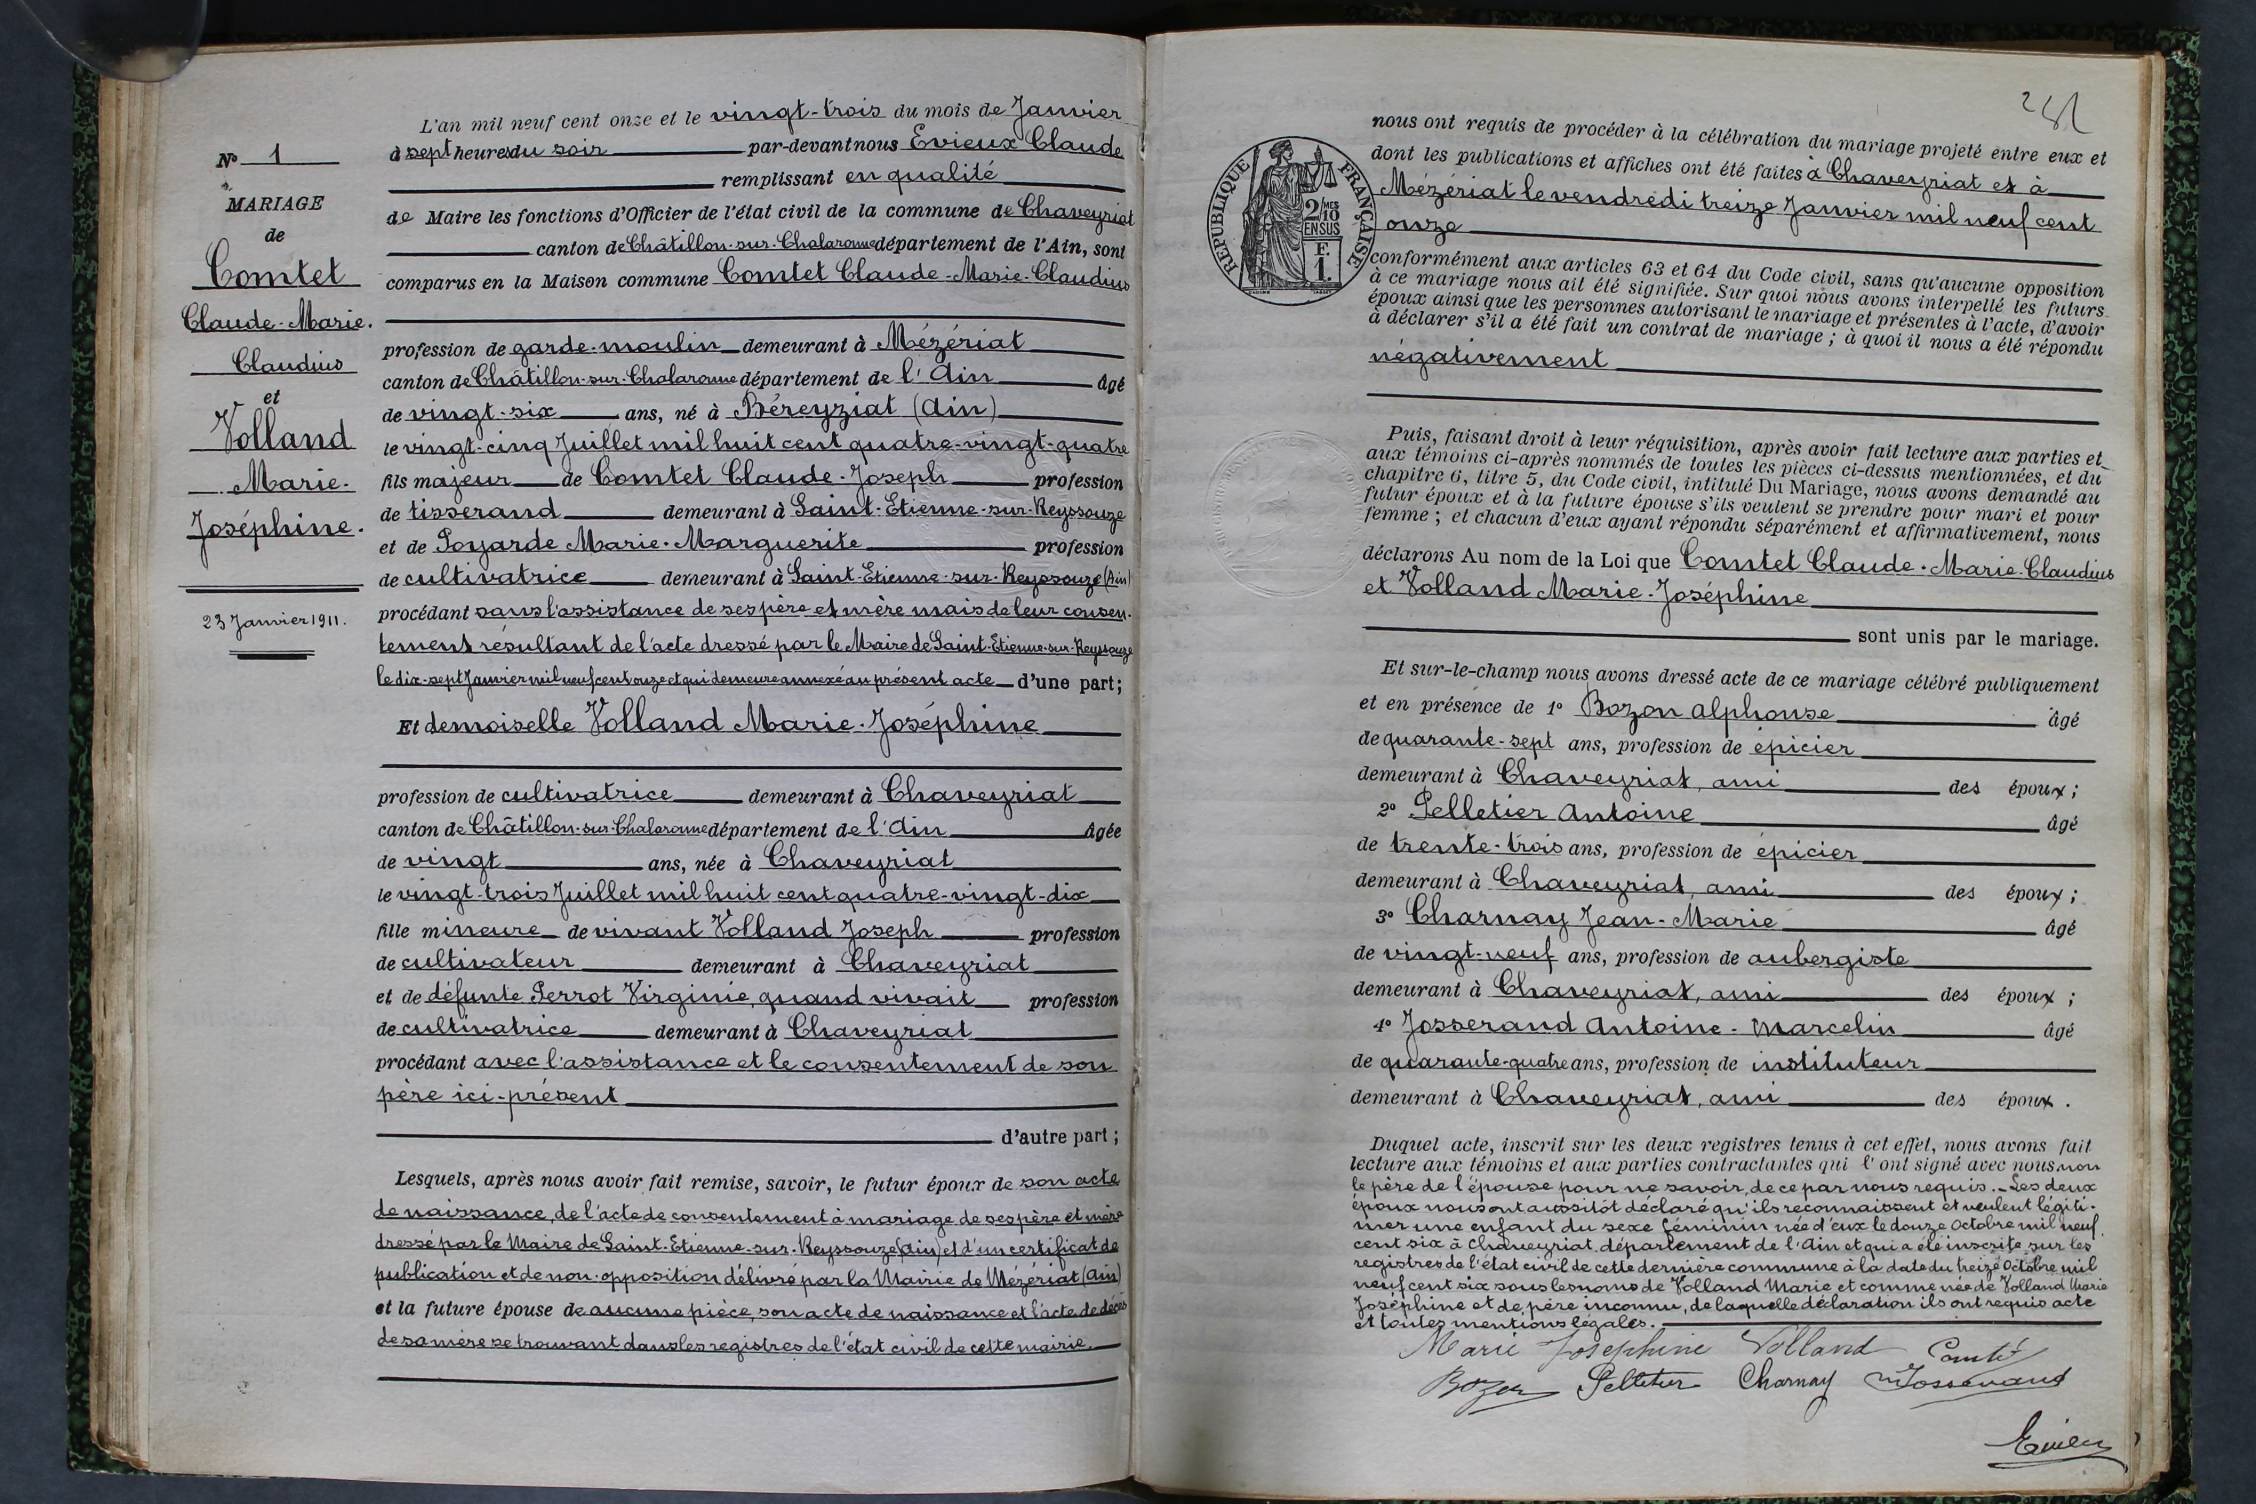 N° 1
MARIAGE
de
Comtet
Claude-Marie.
Claudius
et
Volland
Marie-
Joséphine.
23 Janvier 1911.
L'an mil neuf cent onze et le vingt-trois du mois de Janvier
à sept heures du soir par-devant nous Evieux Claude
remplissant en qualité
de Maire les fonctions d'Officier de l'état civil de la commune de Chaveyriat
canton de Châtillon-sur-Chalaronne département de l'Ain, sont
comparus en la Maison commune Comtet Claude-Marie-Claudius
profession de garde-moulin demeurant à Mézériat
canton de Châtillon-sur-Chalaronne département de l'Ain âgé
de vingt-six ans, né à Béreyziat (Ain)
le vingt-cinq Juillet mil huit cent quatre-vingt-quatre
fils majeur de Comtet Claude-Joseph profession
de tisserand demeurant à Saint-Etienne-sur-Reyssouze
et de Poyarde Marie-Marguerite profession
de cultivatrice demeurant à Saint-Etienne-sur-Reyssouze (Ain)
procédant sans l'assistance de ses père et mère mais de leur consen-
tement résultant de l'acte dressé par le Maire de Saint-Etienne-sur-Reyssouze
le dix-sept Janvier mil neuf cent onze et qui demeure annexé au présent acte d'une part;
Et demoiselle Volland Marie-Joséphine
profession de cultivatrice demeurant à Chaveyriat
canton de Châtillon-sur-Chalaronne département de l'Ain âgée
de vingt ans, née à Chaveyriat
le vingt-trois Juillet mil huit cent quatre-vingt-dix
fille mineure de vivant Volland Joseph profession
de cultivateur demeurant à Chaveyriat
et de défunte Perrot Virginie, quand vivait profession
de cultivatrice demeurant à Chaveyriat
procédant avec l'assistance et le consentement de son
père ici-présent
d'autre part;
Lesquels, après nous avoir fait remise, savoir, le futur époux de son acte
de naissance, de l'acte de consentement à mariage de ses père et mère
dressé par le Maire de Saint-Etienne-sur-Reyssouze (Ain) et d'un certificat de
publication et de non-opposition délivré par la Mairie de Mézériat (Ain)
et la future épouse de aucune pièce, son acte de naissance et l'acte de décès
de sa mère se trouvant dans les registres de l'état civil de cette mairie.
nous ont requis de procéder à la célébration du mariage projeté entre eux et
dont les publications et affiches ont été faites à Chaveyriat et à
Mézériat le vendredi treize Janvier mil neuf cent
onze
RÉPUBLIQUE FRANÇAISE
2/10 MES
EN SUS
F.
1.
conformément aux articles 63 et 64 du Code civil, sans qu'aucune opposition
à ce mariage nous ait été signifiée. Sur quoi nous avons interpellé les futurs
époux ainsi que les personnes autorisant le mariage et présentes à l'acte, d'avoir
à déclarer s'il a été fait un contrat de mariage; à quoi il nous a été répondu
négativement
Puis, faisant droit à leur réquisition, après avoir fait lecture aux parties et
aux témoins ci-après nommés de toutes les pièces ci-dessus mentionnées, et du
chapitre 6, titre 5, du Code civil, intitulé Du Mariage, nous avons demandé au
futur époux et à la future épouse s'ils veulent se prendre pour mari et pour
femme; et chacun d'eux ayant répondu séparément et affirmativement, nous
déclarons Au nom de la Loi que Comtet Claude-Marie-Claudius
et Volland Marie-Joséphine
sont unis par le mariage.
Et sur-le-champ nous avons dressé acte de ce mariage célébré publiquement
et en présence de 1° Bozon Alphonse âgé
de quarante-sept ans, profession de épicier
demeurant à Chaveyriat, ami des époux;
2° Pelletier Antoine âgé
de trente-trois ans, profession de épicier
demeurant à Chaveyriat, ami des époux;
3° Charnay Jean-Marie âgé
de vingt-neuf ans, profession de aubergiste
demeurant à Chaveyriat, ami des époux;
4° Josserand Antoine-Marcelin âgé
de quarante-quatre ans, profession de instituteur
demeurant à Chaveyriat, ami des époux.
Duquel acte, inscrit sur les deux registres tenus à cet effet, nous avons fait
lecture aux témoins et aux parties contractantes qui l'ont signé avec nous, non
le père de l'épouse pour ne savoir, de ce par nous requis. - Les deux
époux nous ont aussitôt déclaré qu'ils reconnaissent et veulent légiti-
mer une enfant du sexe féminin née d'eux le douze Octobre mil neuf
cent six à Chaveyriat département de l'Ain et qui a été inscrite sur les
registres de l'état civil de cette dernière commune à la date du treize Octobre mil
neuf cent six sous les noms de Volland Marie et comme née de Volland Marie
Joséphine et de père inconnu, de laquelle déclaration ils ont requis acte
et toutes mentions légales.
Marie Joséphine Volland Comtet
Bozon Pelletier Charnay Josserand
Evieux